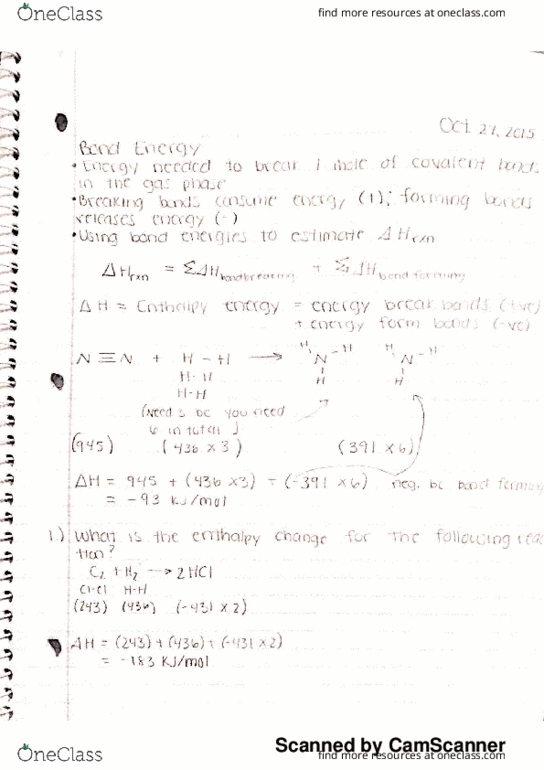 OneClass
find more resources at oneclass.com
Oct. 27, 2015
Bond Energy
• Energy needed to break 1 mole of covalent bonds
in the gas phase
• Breaking bonds consume energy (+); forming bonds
releases energy (-)
• Using bond energies to estimate ΔHrxn
ΔHrxn = ΣΔHbond breaking + ΣΔHbond forming
ΔH = Enthalpy energy = energy break bonds (+ve)
+ energy form bonds (-ve)
N≡N + H-H → H N-H H N-H
H-H H H
H-H
(Need 3 bc you need
6 in total)
(945) (436 x 3) (391 x 6)
ΔH = 945 + (436 x3) + (-391 x 6) neg. bc bond forming
= -93 KJ/mol
1.) What is the enthalpy change for the following reac
tion?
C2 + H2 → 2HCl
Cl-Cl H-H
(243) (436) (-431 x 2)
ΔH = (243) + (436) + (-431 x2)
= -183 KJ/mol
Scanned by CamScanner
OneClass
find more resources at oneclass.com